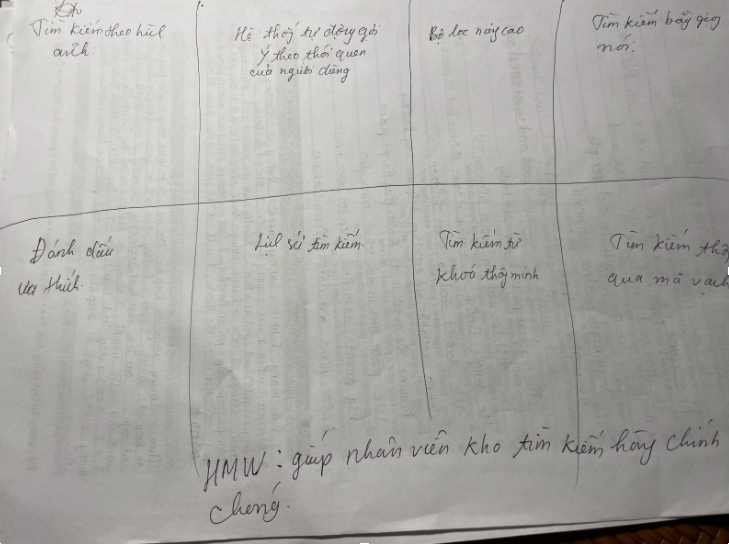 Tìm kiếm theo hình
ảnh.
Hệ thống tự động gợi
Ý theo thói quen
của người dùng
Bộ lọc nâng cao
Tìm kiếm bằng giọng
nói.
Đánh dấu
ưa thích.
Lịch sử tìm kiếm.
Tìm kiếm từ
khoá thông minh
Tìm kiếm
qua mã vạch
HMW: giúp nhân viên kho tìm kiếm hàng chính